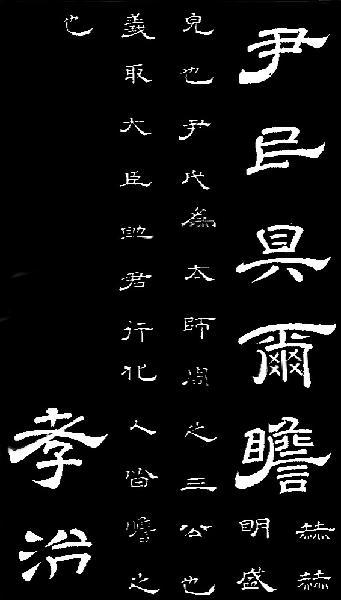 尹民具爾瞻
赫赫
明盛
皃也尹氏為太師周之三公也
義取大臣助君行化人皆瞻之
也
孝治